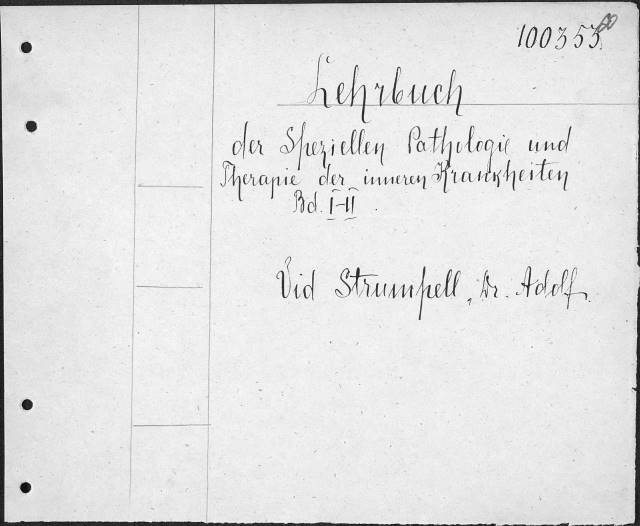 100353
Lehrbuch
der Speziellen Pathologie und
Therapie der inneren Krankheiten
Bd. I-II
Vid Strumpell, Dr. Adolf.